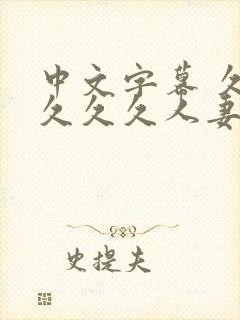 中文字幕 久
久久久人妻
史提夫